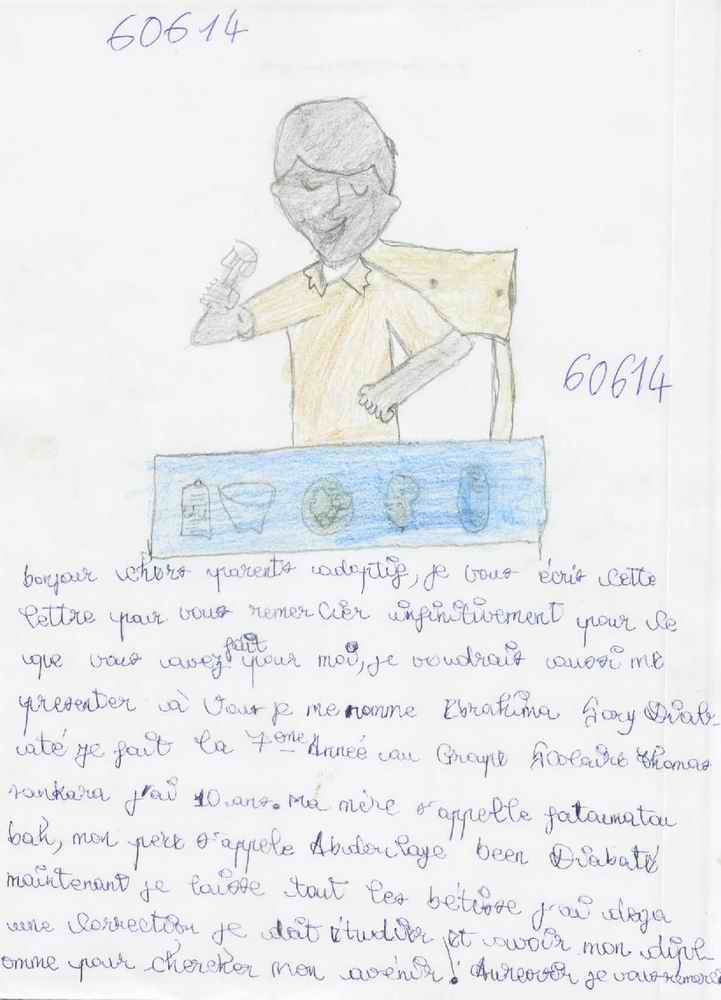 60614
60614
bonjour chèrs parents adoptif, je vous écris cette
lettre pour vous remercier infinitivement pour ce
que vous avez fait pour moi, je voudrais aussi me
presenter à vous je me nomme Ibrahima Sory Diab-
até je fait la 7ème Année au Groupe Scolaire Thomas
sankara j'ai 10 ans. Ma mère s'appelle fatoumatou
bah, mon père s'appele Abdoulaye been Diabaté
maintenant je laisse tout les bétisse j'ai deja
une correction je doit étudier et avoir mon dipl-
omme pour chercher mon avenir! Aurevoir je vous remercie